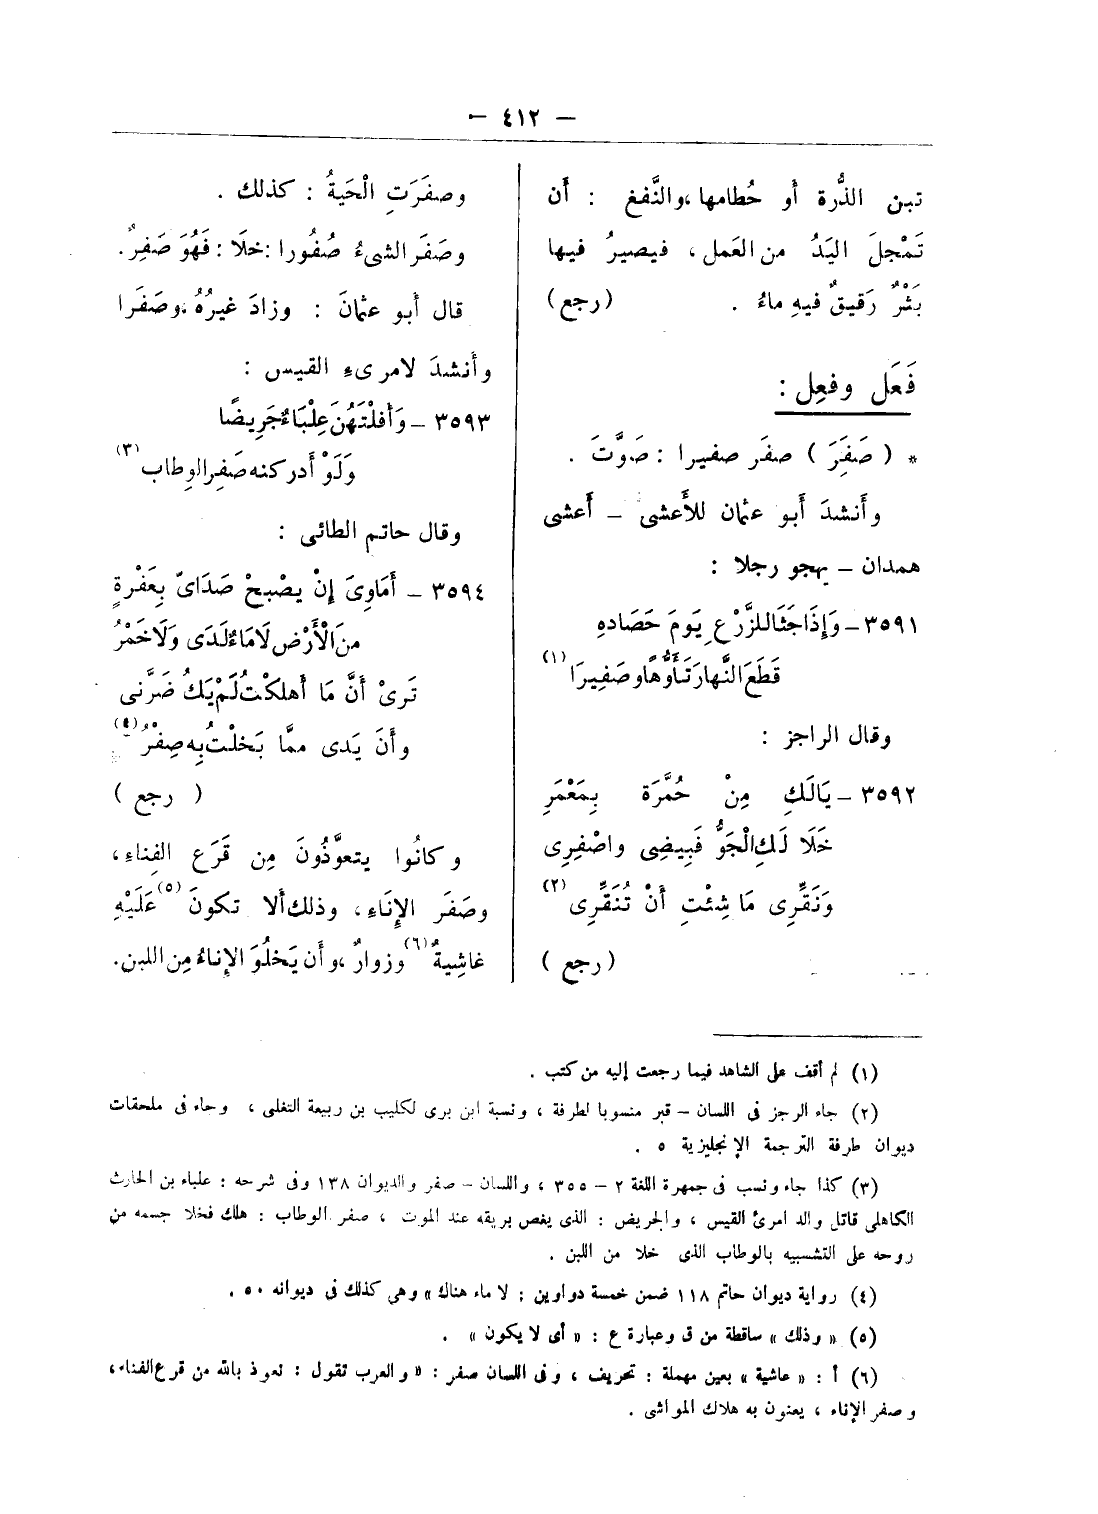 — ٤١٢ —
تبن الذُّرة أو حُطامها، والنَّفغ : أن
تَمْجلَ اليَدُ من العَمل، فيصيرُ فيها
بَثْرٌ رَقيقٌ فيهِ ماءُ . (رجع)
فَعَل وفعِل :
* ( صَفِرَ ) صفَر صفيرا : صَوَّتَ .
وأنشدَ أبو عثمان للأَعشى – أَعشى
همدان – يهجو رجلا :
٣٥٩١ – وَإِذَا جَثَا للزَّرْعِ يَومَ حَصَادهِ
قَطَعَ النَّهارَ تَأَوُّهًا وصَفِيرَا (١)
وقال الراجز :
٣٥٩٢ – يَالَكِ مِنْ حُمَّرَة بِمَعْمَرِ
خَلَا لَكِ الْجَوُّ فَبِيضِى واصْفِرِى
وَنَقِّرِى مَا شِئْتِ أَنْ تُنَقِّرِى (٢)
(رجع )
وصفَرَتِ الْحَيةُ : كذلك .
وصَفَر الشىءُ صُفُورا : خلَا : فَهُوَ صَفِرٌ.
قال أبو عثمانَ : وزادَ غيرُهُ ،وصَفَرا
وأنشدَ لامرىءِ القيس :
٣٥٩٣ – وَأَفلْتَهُنَ عِلْبَاءٌ جَرِيضًا
وَلَوْ أَدركنه صَفِر الوِطاب (٣)
وقال حاتم الطائى :
٣٥٩٤ – أَمَاوِىَ إنْ يصْبحْ صَدَاىَ بِعَفْرةٍ
منَ الْأَرْض لَا مَاءٌ لَدَى وَلَا خَمْرُ
تَرىْ أَنَّ مَا أَهلكْتُ لَمْ يَكُ ضَرَّنى
وأَنَ يَدى ممَّا بَخلْتُ بِه صِفْرُ (٤)
( رجع )
وكانُوا يتعوَّذُونَ مِن قَرَع الفِناءِ،
وصَفَر الإِنَاءِ، وذلك أَلا تكونَ (٥) عَلَيْهِ
غاشِيةٌ (٦) وزوارٌ ،وأَن يَخلُوَ الإِناءُ مِن اللبن.
(١) لم أقف على الشاهد فيما رجعت إليه من كتب .
(٢) جاء الرجز فى اللسان – قبر منسوبا لطرفة ، ونسبة ابن برى لكليب بن ربيعة التغلى ، وجاء فى ملحقات
ديوان طرفة الترجمة الإنجليزية ٥ .
(٣) كذا جاء ونسب فى جمهرة اللغة ٢ – ٣٥٥ ، واللسان – صفر والديوان ١٣٨ وفى شرحه : علباء بن الحارث
الكاهلى قاتل والد امرئ القيس ، والجريض : الذى يغص بريقه عند الموت ، صفر الوطاب : هلك فخلا جسمه من
روحه على التشبيه بالوطاب الذى خلا من اللبن .
(٤) رواية ديوان حاتم ١١٨ ضمن خمسة دواوين : لا ماء هناك» وهى كذلك فى ديوانه ٥٠ .
(٥) « وذلك » ساقطة من ق وعبارة ع : « أى لا يكون » .
(٦) أ : « عاشية » بعين مهملة : تحريف ، وفى اللسان صفر : « والعرب تقول : نعوذ بالله من قرع الفناء ،
وصفر الإناء ، يعنون به هلاك المواشى .